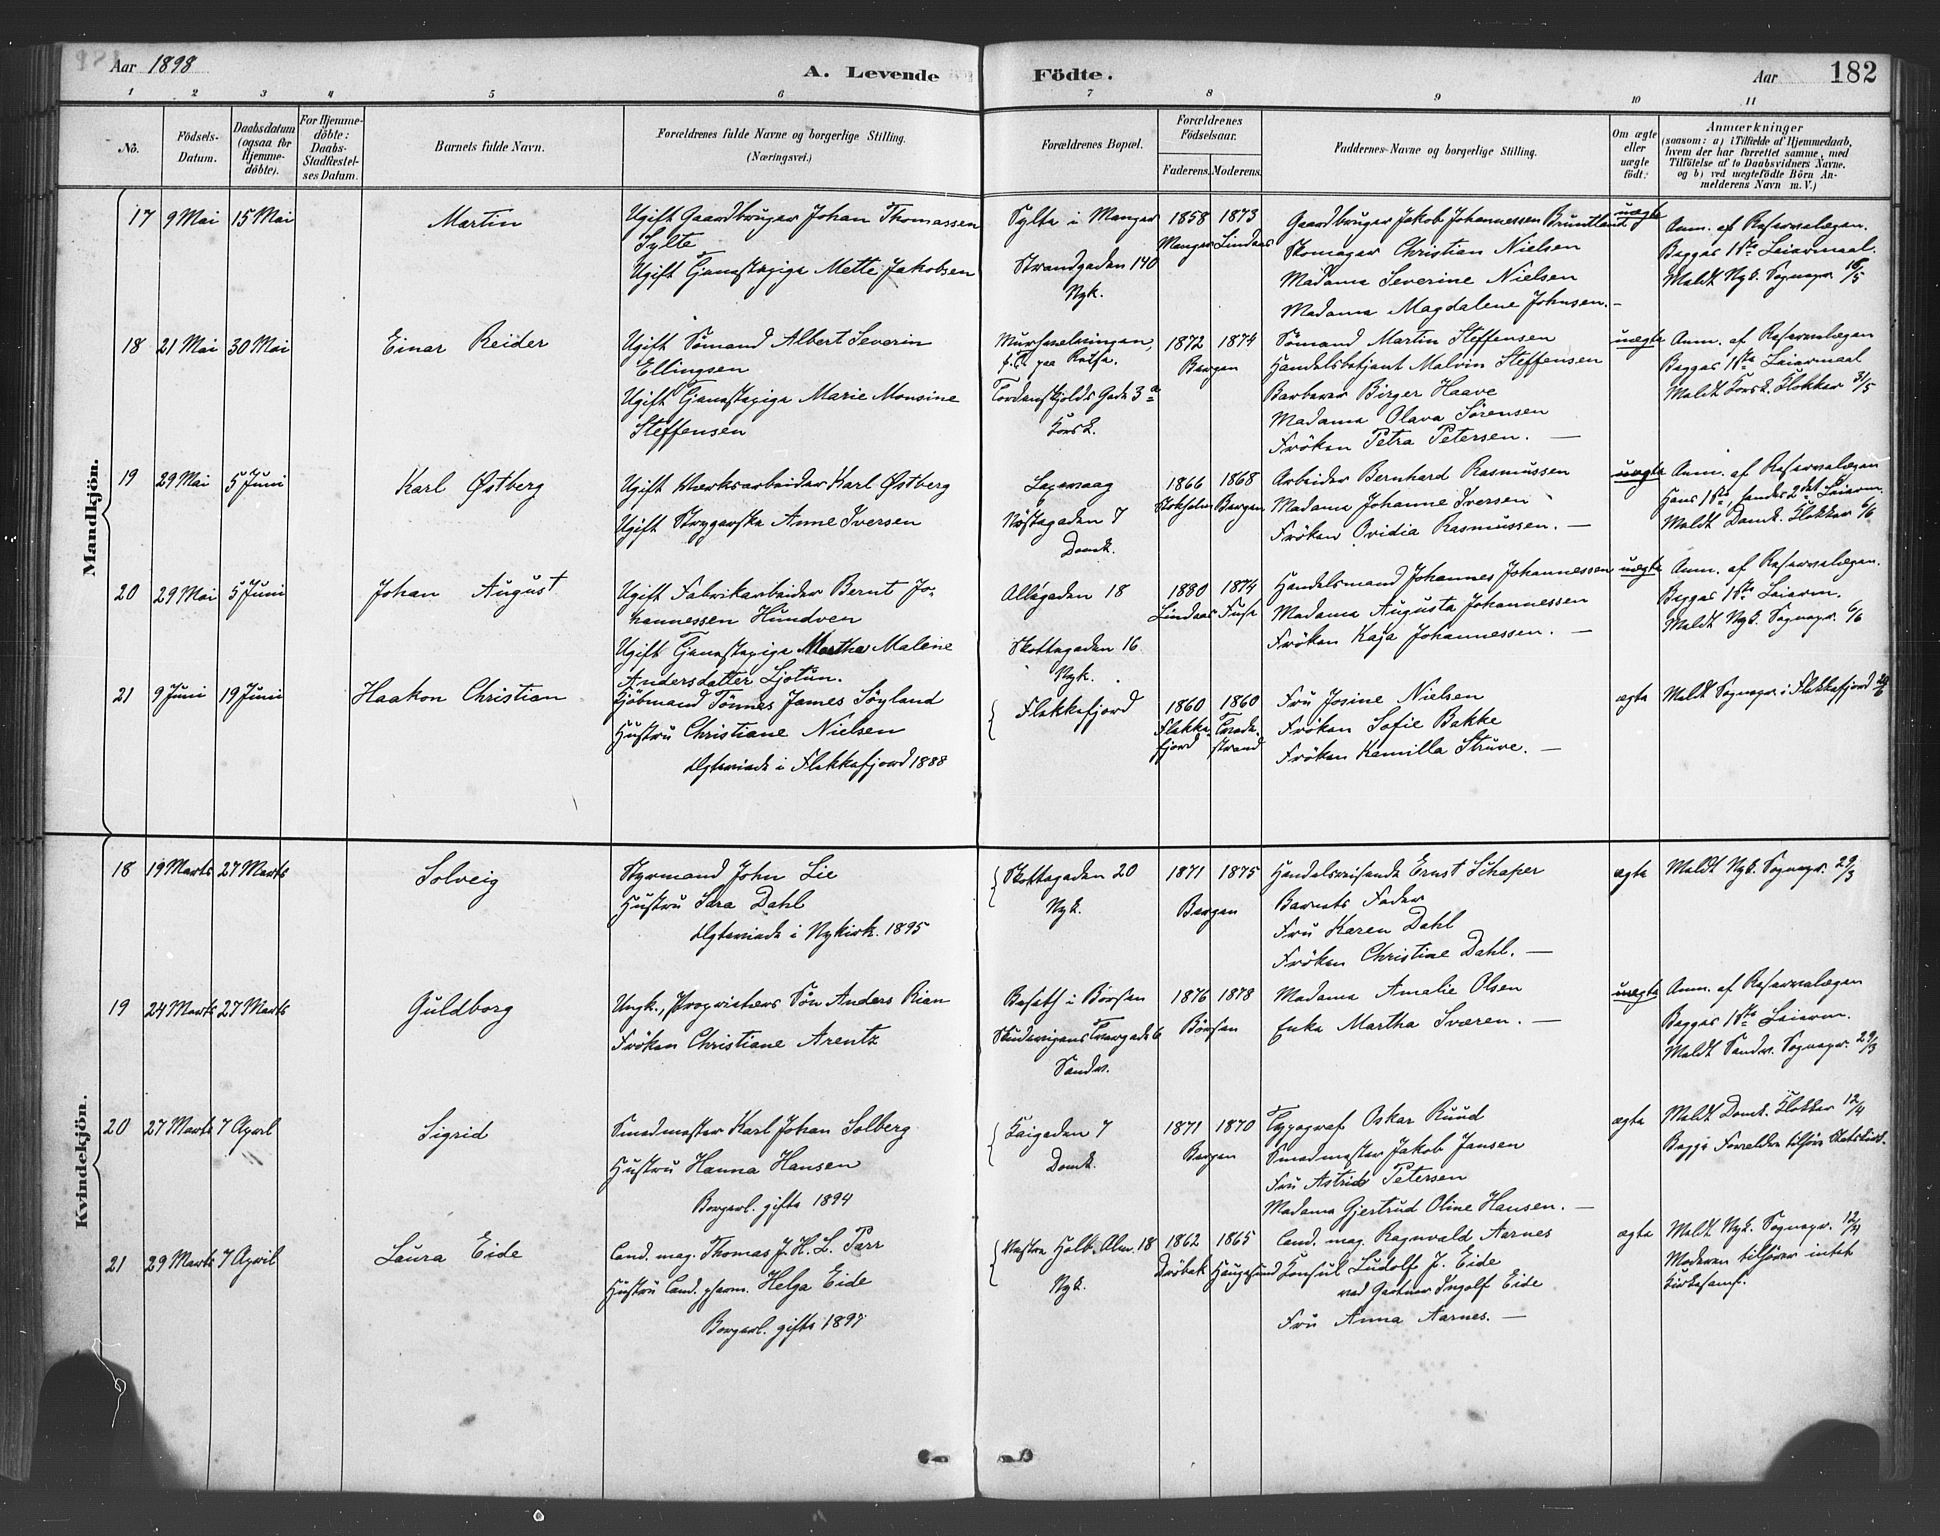 Aar 1898
A. Levende Födte.
Aar
182
1 2 3 4 5 6 7 8 9 10 11
No.
Födsels-Datum.
Daabsdatum (ogsaa for Hjemme-döbte).
For Hjemme-döbte: Daabs-Stadfæstel-ses Datum.
Barnets fulde Navn.
Forældrenes fulde Navne og borgerlige Stilling. (Næringsvei.)
Forældrenes Bopæl.
Forældrenes Födselsaar.
Faderens. Moderens.
Faddernes Navne og borgerlige Stilling.
Om ægte eller uægte födt:
Anmærkninger
(saasom: a) i Tilfælde af Hjemmedaab,
hvem der har forrettet samme, med
Tilföielse af to Daabsvidners Navne.
og b) ved uægtefödte Börn An-
melderens Navn m. V.)
Mandkjön.
17 9 Mai 15 Mai Martin
Ugift Gaardbruger Johan Thomassen
Sylte
Ugift Tjenestepige Mette Jakobsen
Sylte i Manger
Strandgaden 140
Nyk.
1858 1873
Manger Lindaas
Gaardbruger Jakob Johannessen Bruntland
Skomager Christian Nielsen
Madame Severine Nielsen
Madame Magdalene Johnsen. —
uægte
Anm. af Reservelægen.
Begges 1ste Leiermaal.
Meldt Nyk. Sognepr. 16/5
18 21 Mai 30 Mai Einar Reider
Ugift Sömand Albert Severin
Ellingsen
Ugift Tjenestepige Marie Monsine
Steffensen
f. T. paa Reise.
Tordenskjolds Gade 3a
Korsk.
1872 1874
Bergen
Sömand Martin Steffensen
Handelsbetjent Malvin Steffensen
Barberer Birger Haave
Madame Olava Sörensen
Fröken Petra Petersen. —
uægte
Anm. af Reservelægen
Begges 1ste Leiermaal
Meldt Korsk. Klokker 31/5
19 29 Mai 5 Juni Karl Østberg
Ugift Værksarbeider Karl Østberg
Ugift Strygerske Anne Iversen
Laxevaag
Nöstegaden 7
Domk.
1866 1868
Stokholm Bergen
Arbeider Bernhard Rasmussen
Madame Johanne Iversen
Fröken Ovidia Rasmussen. —
uægte
Anm. af Reservelægen
Hans 1ste, hendes 2det Leierm.
Meldt Domk. Klokker 6/6
20 29 Mai 5 Juni Johan August
Ugift Fabrikarbeider Bernt Jo-
hannessen Hundven
Ugift Tjenestepige Marthe Malene
Andersdatter Ljotun.
Allégaden 18
Skottegaden 16
Nyk.
1880 1874
Lindaas Fuse
Handelsmand Johannes Johannessen
Madame Augusta Johannessen
Fröken Kaja Johannessen. —
uægte
Anm. af Reservelægen.
Begges 1ste Leierm.
Meldt Nyk. Sognepr. 6/6
21 9 Juni 19 Juni Haakon Christian
Kjöbmand Tönnes James Söyland
Hustru Christiane Nielsen
Ægteviede i Flekkefjord 1888
Flekkefjord
1860 1860
Flekke-fjord
Fru Josine Nielsen
Fröken Sofie Bakke
Fröken Kamilla Struve. —
ægte
Meldt Sognepr. i Flekkefjord
Kvindekjön.
18 19 Marts 27 Marts Solveig
Styrmand John Lie
Hustru Sara Dahl
Ægteviede i Nykirk. 1895
Skottegaden 20
Nyk.
1871 1875
Bergen
Handelsreisende Ernst Schaper
Barnets Fader
Fru Karen Dahl
Fröken Christine Dahl. —
ægte
Meldt Nyk. Sognepr. 29/3
19 24 Marts 27 Marts Guldborg
Ungk., Proprietærs Sön Anders Rian
Fröken Christiane Arentz
Besett i Börsen
Skudevigens Tværgade 6
Sandv.
1876 1878
Börsen
Madame Amalie Olsen
Enke Martha Sværen. —
uægte
Anm. af Reservelægen
Begges 1ste Leierm.
Meldt Sandv. Sognepr. 29/3
20 27 Marts 7 April Sigrid
Smedmester Karl Johan Solberg
Hustru Hanna Hansen
Borgerl. gifte 1894
Kaigaden 7
Domk.
1871 1870
Bergen
Typograf Oskar Ruud
Smedmester Jakob Jansen
Fru Astrid Petersen
Madame Gjertrud Oline Hansen. —
ægte
Meldt Domk. Klokker 12/4
Begge Forældre tilhöre Statskirk.
21 29 Marts 7 April Laura Eide
Cand. mag. Thomas J. H. L. Parr
Hustru Cand. pharm. Helga Eide
Borgerl. gifte 1897
Vestre Holb. Alm. 18
Nyk.
1862 1865
Dröbak Haugesund
Cand. mag. Ragnvald Aarnes
Konsul Ludolf J. Eide
ved Gartner Ingolf Eide
Fru Anna Aarnes. —
ægte
Meldt Nyk. Sognepr. 12/4
Moderen tilhörer intet
Kirkesamf.